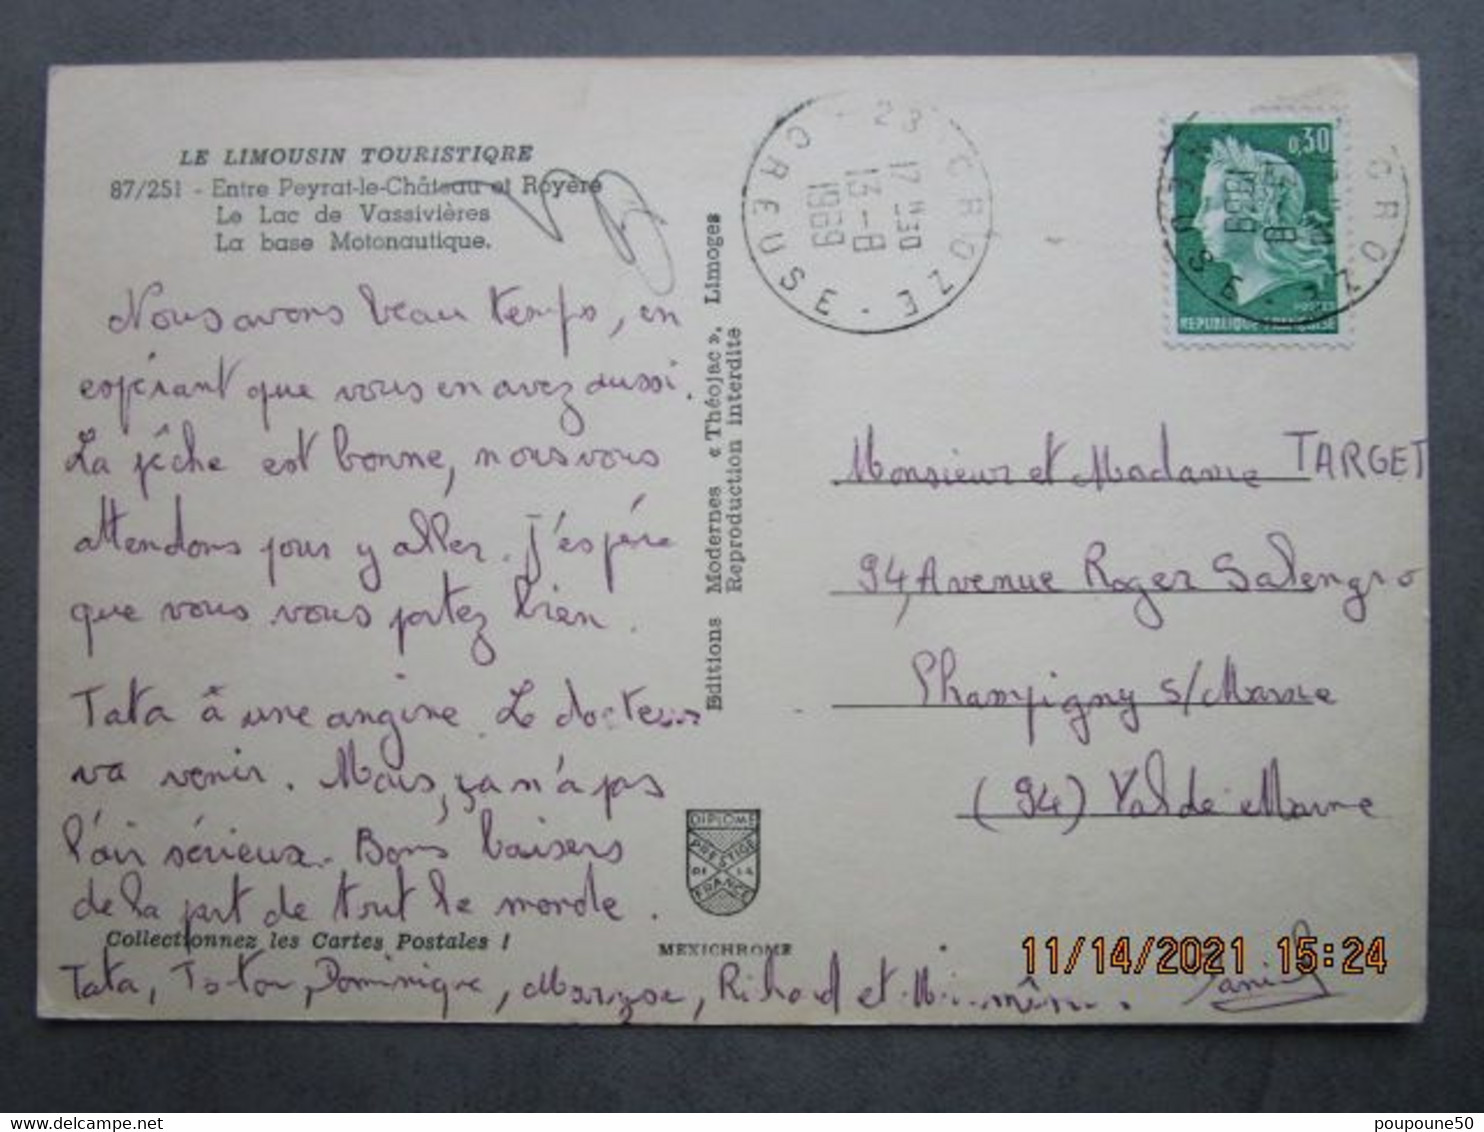 LE LIMOUSIN TOURISTIQRE
87/251 - Entre Peyrat-le-Château et Royère
Le Lac de Vassivières
La base Motonautique.
Nous avons beau temps, en
espérant que vous en avez aussi.
La pêche est bonne, nous vous
attendons pour y aller. J'espère
que vous vous portez bien.
Tata à une angine. Le docteur
va venir. Mais, ça n'a pas
l'air sérieux. Bons baisers
de la part de tout le monde.
Collectionnez les Cartes Postales !
Tata, Tonton, Dominique, Maryse, Richard et Mi-mên.
Daniel
Editions Modernes « Théojac », Limoges
Reproduction interdite
DIPLOME
PRESTIGE
DE LA
FRANCE
MEXICHROME
23 CROZE - CREUSE -
17 H
13-8
1969
0,30
POSTES
REPUBLIQUE FRANÇAISE
CROZE - CREUSE
1969
Monsieur et Madame TARGET
94, Avenue Roger Salengro
Champigny s/Marne
(94) Val de Marne
11/14/2021 15:24
poupoune50